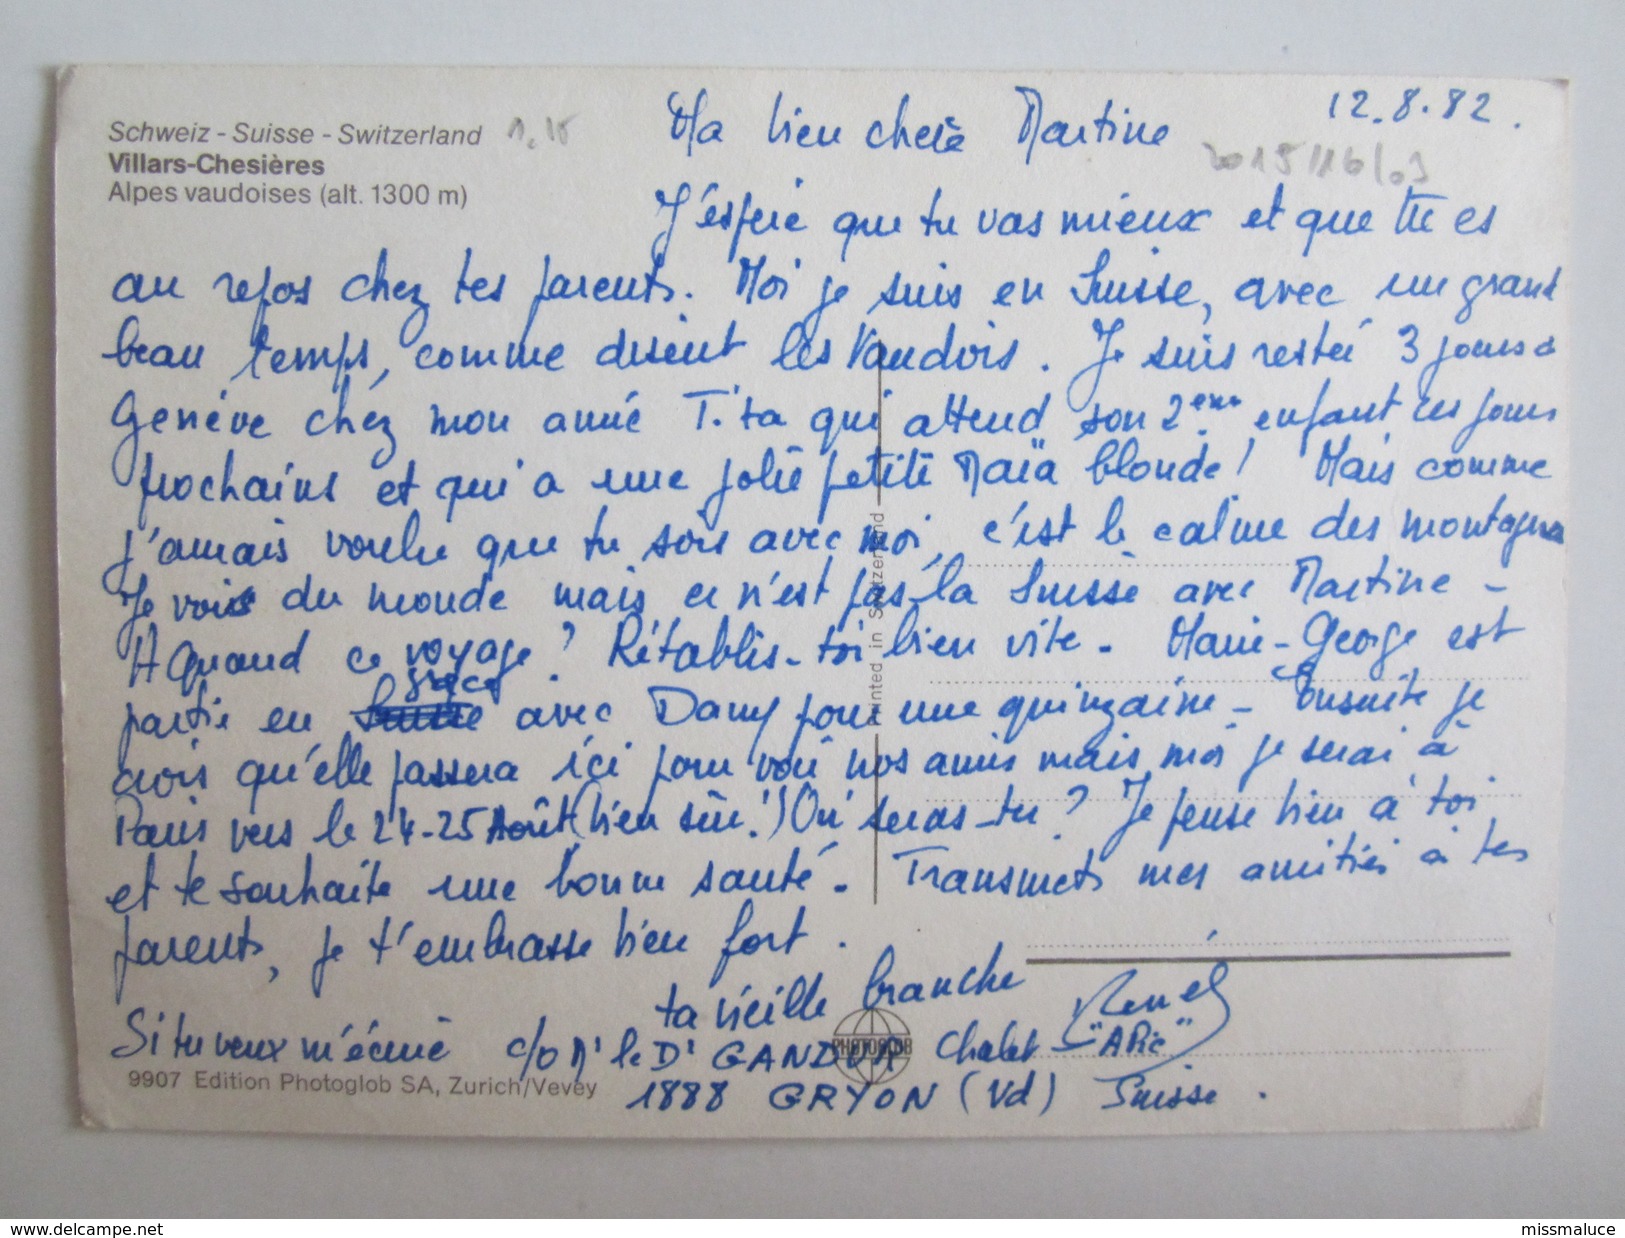 12.8.82.
Schweiz - Suisse - Switzerland
Villars-Chesières
Alpes vaudoises (alt. 1300 m)
Ma bien chère Martine
J'espère que tu vas mieux et que tu es
au repos chez tes parents. Moi je suis en Suisse, avec un grand
beau temps, comme disent les Vaudois. Je suis resté 3 jours à
Genève chez mon amie Tita qui attend son 2ème enfant ces jours
prochains et qui a une jolie petite Maïa blonde! Mais comme
j'amais voulu que tu sois avec moi, c'est le calme des montagnes
Je vois du monde mais ce n'est pas la Suisse avec Martine -
A quand ce voyage? Rétablis-toi bien vite. Marie-George est
partie en grèce avec Dany pour une quinzaine - Ensuite je
crois qu'elle passera ici pour voir nos amis mais moi je serai à
Paris vers le 24-25 Août (bien sûr!) Où seras-tu? Je pense bien à toi
et te souhaite une bonne santé. Transmets mes amitiés à tes
parents, je t'embrasse bien fort.
ta vieille branche
Si tu veux m'écrire c/o Mr le Dr Chalet "APic"
1888 GRYON (Vd) Suisse.
9907 Edition Photoglob SA, Zurich/Vevey
Printed in Switzerland
PHOTOGLOB
www.delcampe.net
missmaluce